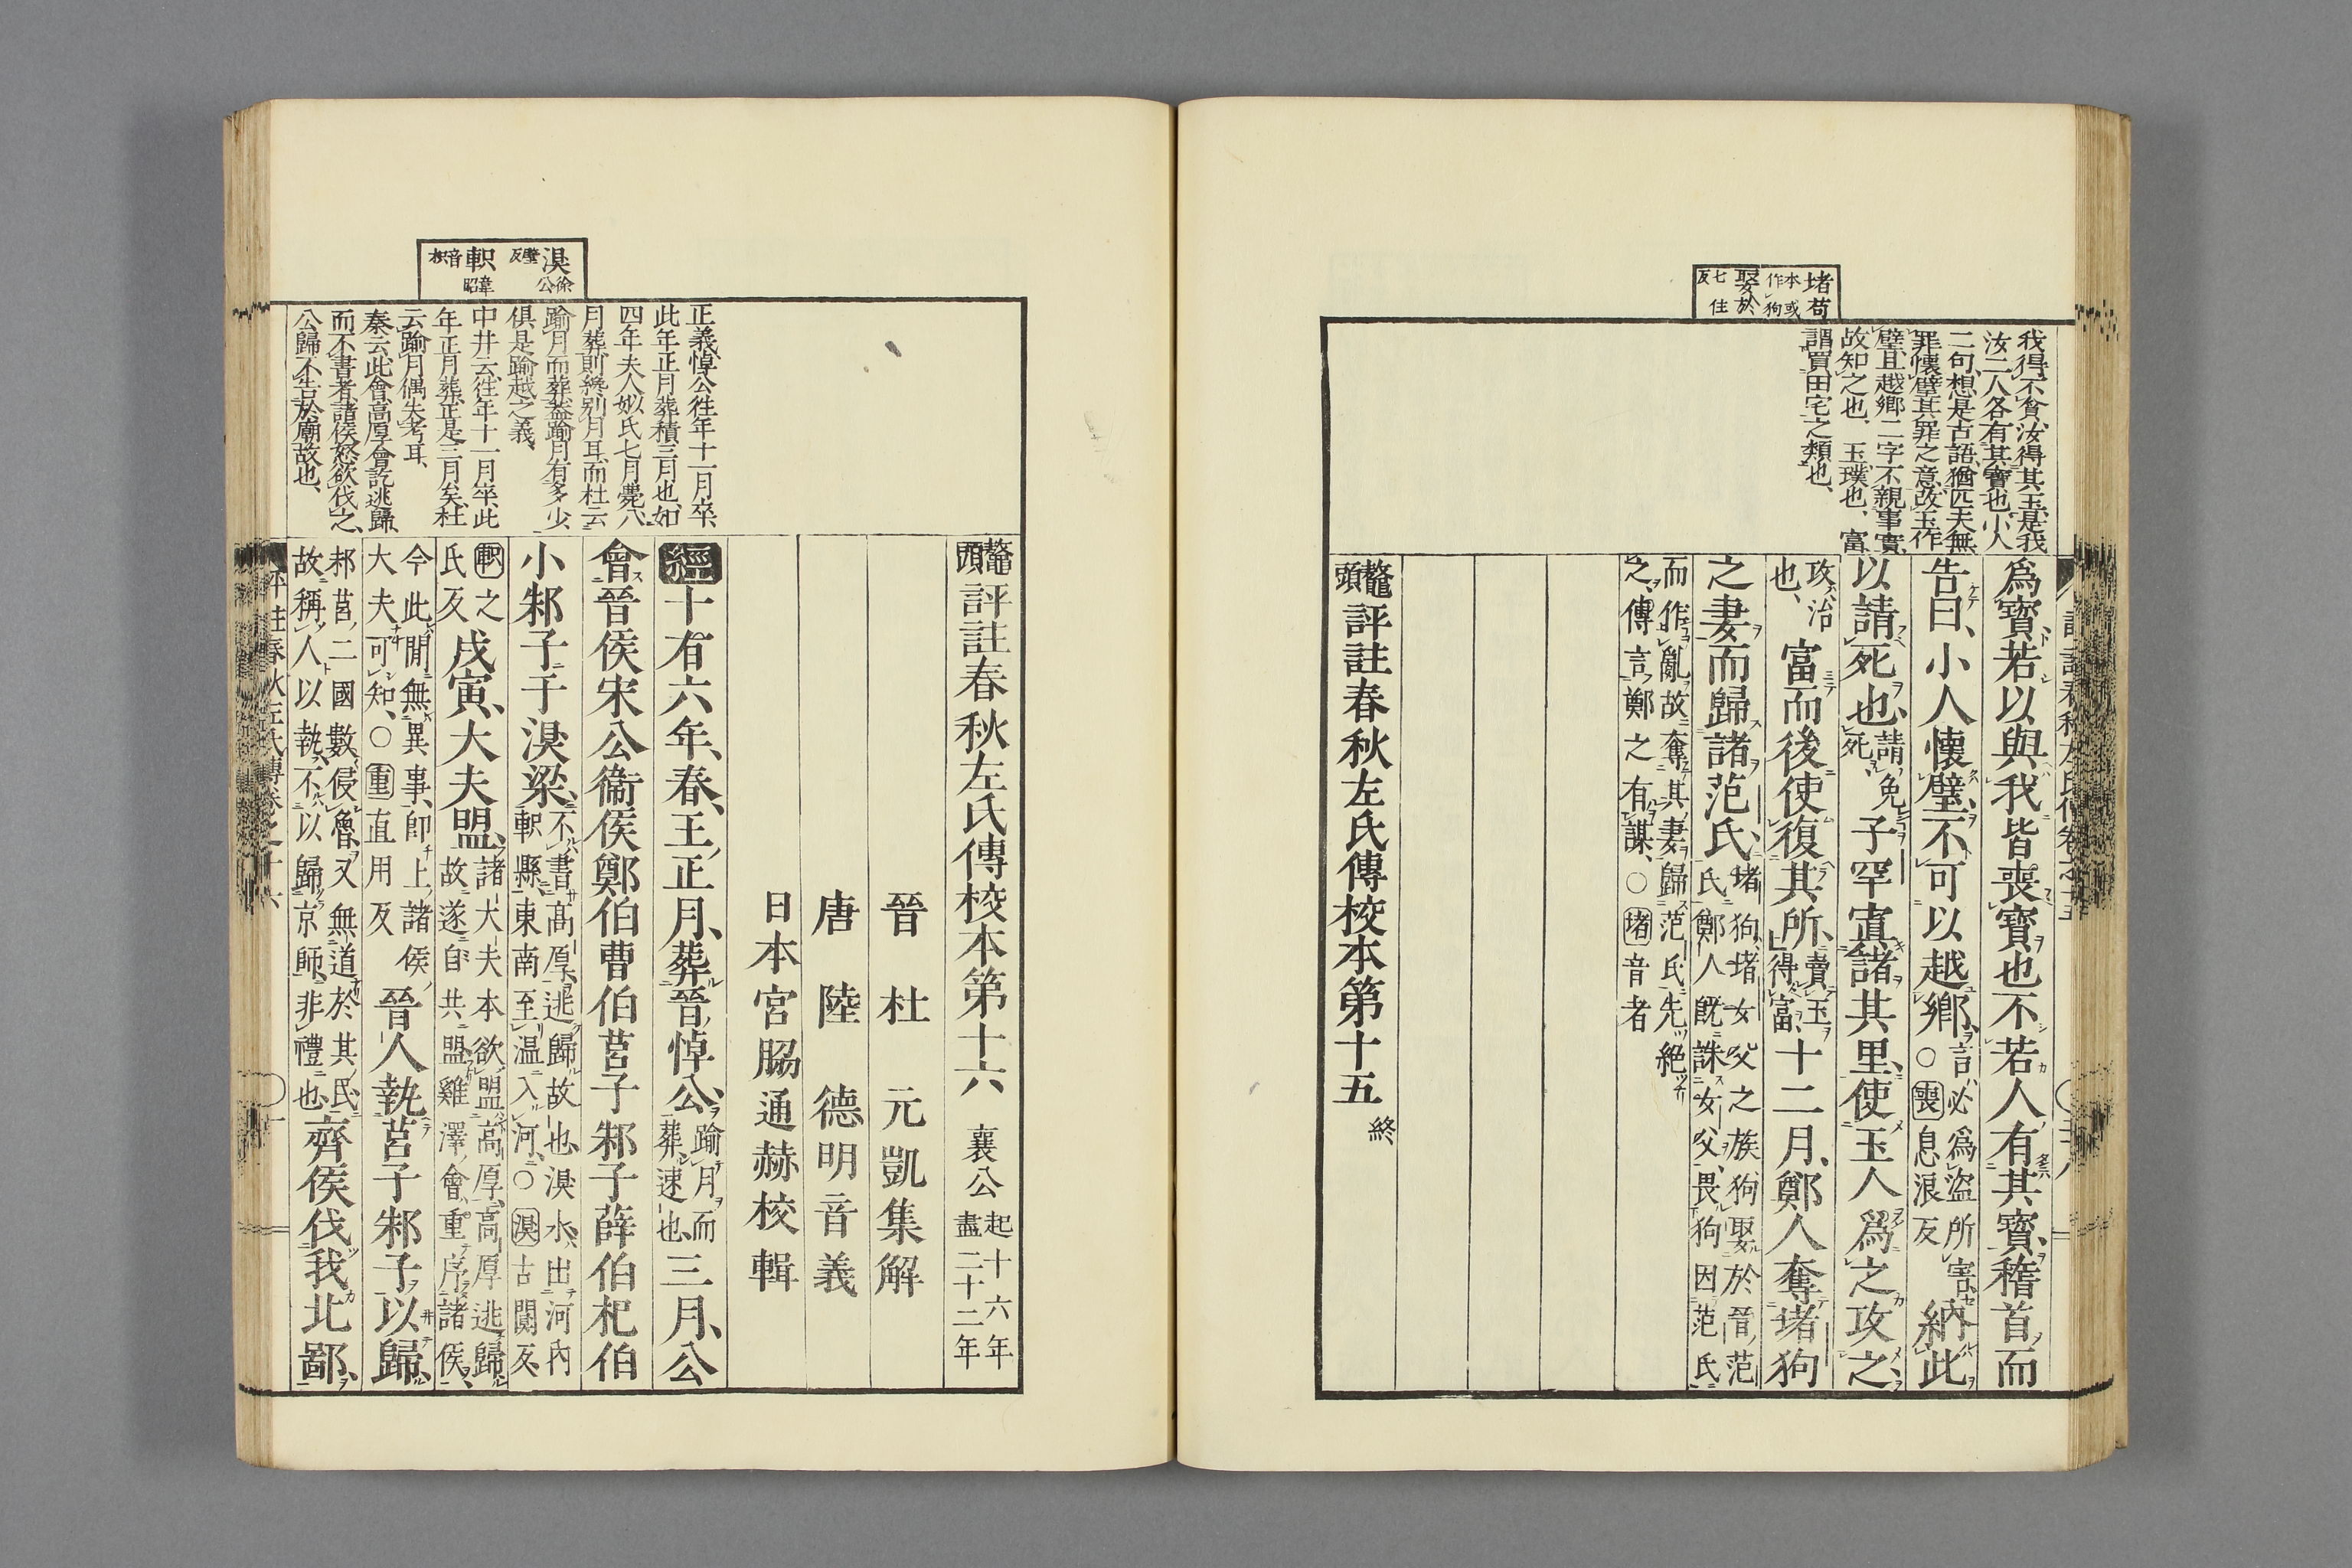 堵苟
本或作狗
娶於
七住反
我得不貪汝得其玉是我
汝二人各有其寶也小人
二句想是古語猶匹夫無
罪懷璧其罪之意故玉作
璧且越鄉二字不親事實
故知之也、玉璞也、富
謂買田宅之類也、
爲寶、若以與我皆喪寶也不若人有其寶、稽首而
告曰、小人懷璧、不可以越鄉、言必爲盜所害、○喪息浪反 納此
以請死也、請免死、子罕寘諸其里、使玉人爲之攻之、
攻、治也、富而後使復其所、賣玉得富、十二月、鄭人奪堵狗
之妻、而歸諸范氏、堵狗、堵女父之族、狗娶於晉范氏、鄭人既誅女父、畏狗因范氏
而作亂、故奪其妻歸范氏、先絕之、傳言鄭之有謀、○堵音者
鼇頭評註春秋左氏傳校本第十五 終
湨
徐公壁反
軹
韋昭音枳
正義悼公往年十一月卒、
此年正月葬積三月也、如
四年夫人姒氏七月薨、八
月葬則纔別月耳、而杜云
踰月而葬蓋踰月有多少、
俱是踰越之義、
中井云、往年十一月卒、此
年正月葬、正是三月矣、杜
云踰月、偶失考耳、
秦云此會高厚會訖逃歸、
而不書者、諸侯怒欲伐之、
公歸不告於廟故也、
鼇頭評註春秋左氏傳校本第十六 襄公 起十六年盡二十二年
晉 杜 元凱集解
唐 陸 德明音義
日本宮脇通赫校輯
經十有六年、春、王正月、葬晉悼公、踰月而葬、速也、三月、公
會晉侯宋公衞侯鄭伯曹伯莒子邾子薛伯杞伯
小邾子于湨梁、不書高厚、逃歸故也、湨水出河內軹縣、東南至温入河、○湨古闃反、
軹之氏反 戊寅、大夫盟、諸大夫本欲盟高厚、高厚逃歸故遂自共盟、雞澤會、重序諸侯、
今此間無異事、卽上諸侯大夫可知、○重直用反 晉人執莒子邾子以歸、
邾莒二國數侵魯、又無道於其民、故稱人以執、不以歸京師、非禮也、齊侯伐我北鄙、